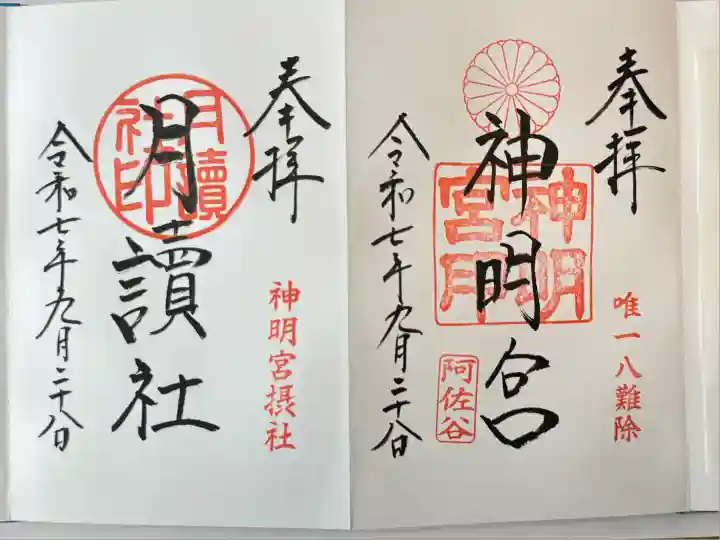 奉拝
唯一八難除
神明宮
神明宮印
阿佐谷
令和七年九月二十八日
奉拝
神明宮摂社
月讀社
月讀社印
令和七年九月二十八日